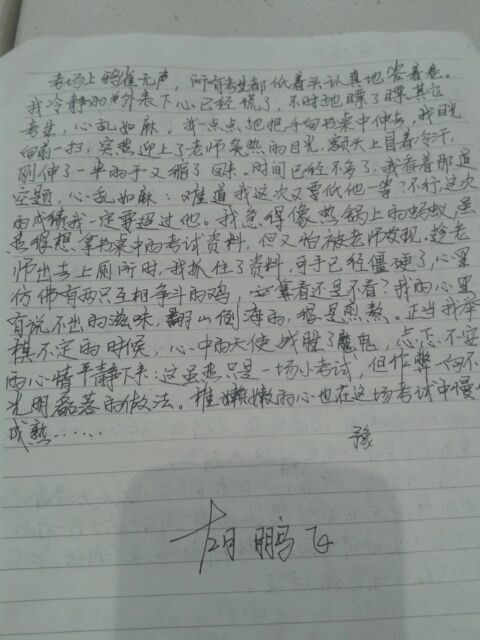 考场上鸦雀无声，所有考生都低着头认真地答着卷。
我冷静的外表下心已经慌了，不时地瞟了瞟其它
考生，心乱如麻。我一点点地把手向书桌中伸去，我目光
向前一扫，突然迎上了老师炙热的目光，额头上冒着冷汗，
刚伸了一半的手又缩了回来。时间已经不多了，我看着那道
空题，心乱如麻：难道我这次又要低他一等？不行，这次
的成绩我一定要超过他。我急得像热锅上的蚂蚁，虽
然很想拿书桌中的考试资料，但又怕被老师发现，趁老
师出去上厕所时，我抓住了资料，可手已经僵硬了，心里
仿佛有两只互相争斗的鸡，拿看还是不看？我的心里
有说不出的滋味，翻山倒海的，很是煎熬。正当我举
棋不定的时候，心中的天使战胜了魔鬼，忐忑不安
的心情平静下来：这虽然只是一场小考试，但作弊一向不
光明磊落的做法。稚嫩嫩的心也在这场考试中慢
成熟……
豫
胡鹏飞